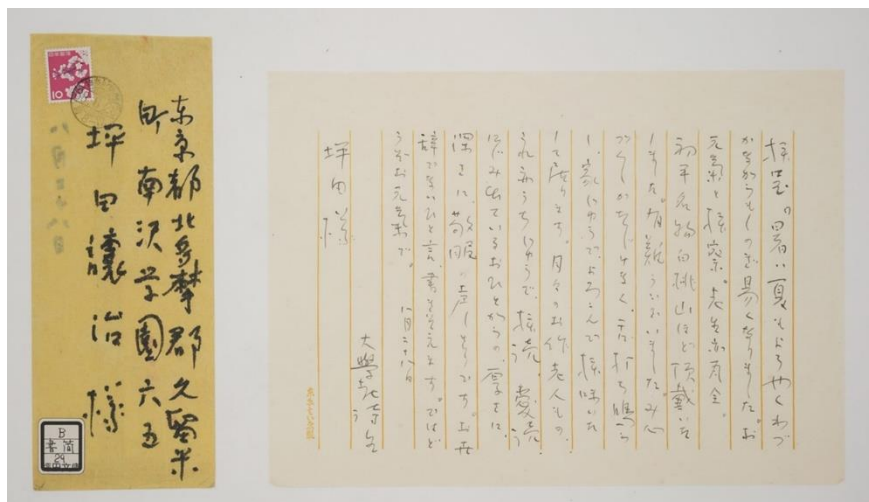 東京都北多摩郡久留米
町南沢学園六五
坪田讓治様
10
B
書簡
29
拝呈。暑い夏もようやくわづ
かながらもしのぎ易くなりました。お
元気と拝察。老生亦万全。
名物白桃山ほど頂戴いた
しました。有難うございました。み心
づくしかたじけなく、舌打ち鳴ら
し、家じゅうで、よろこんで拝味いた
して居ります。月々のお作老人もの、
うちじゅうで、拝読、愛読
にじみ出ているおひとがらの、厚さに、
深さに、敬服の声しきりです。お世
辞でないひと言、書き添えます。ではど
うぞお元気で。
八月二十八日
大學
坪田様